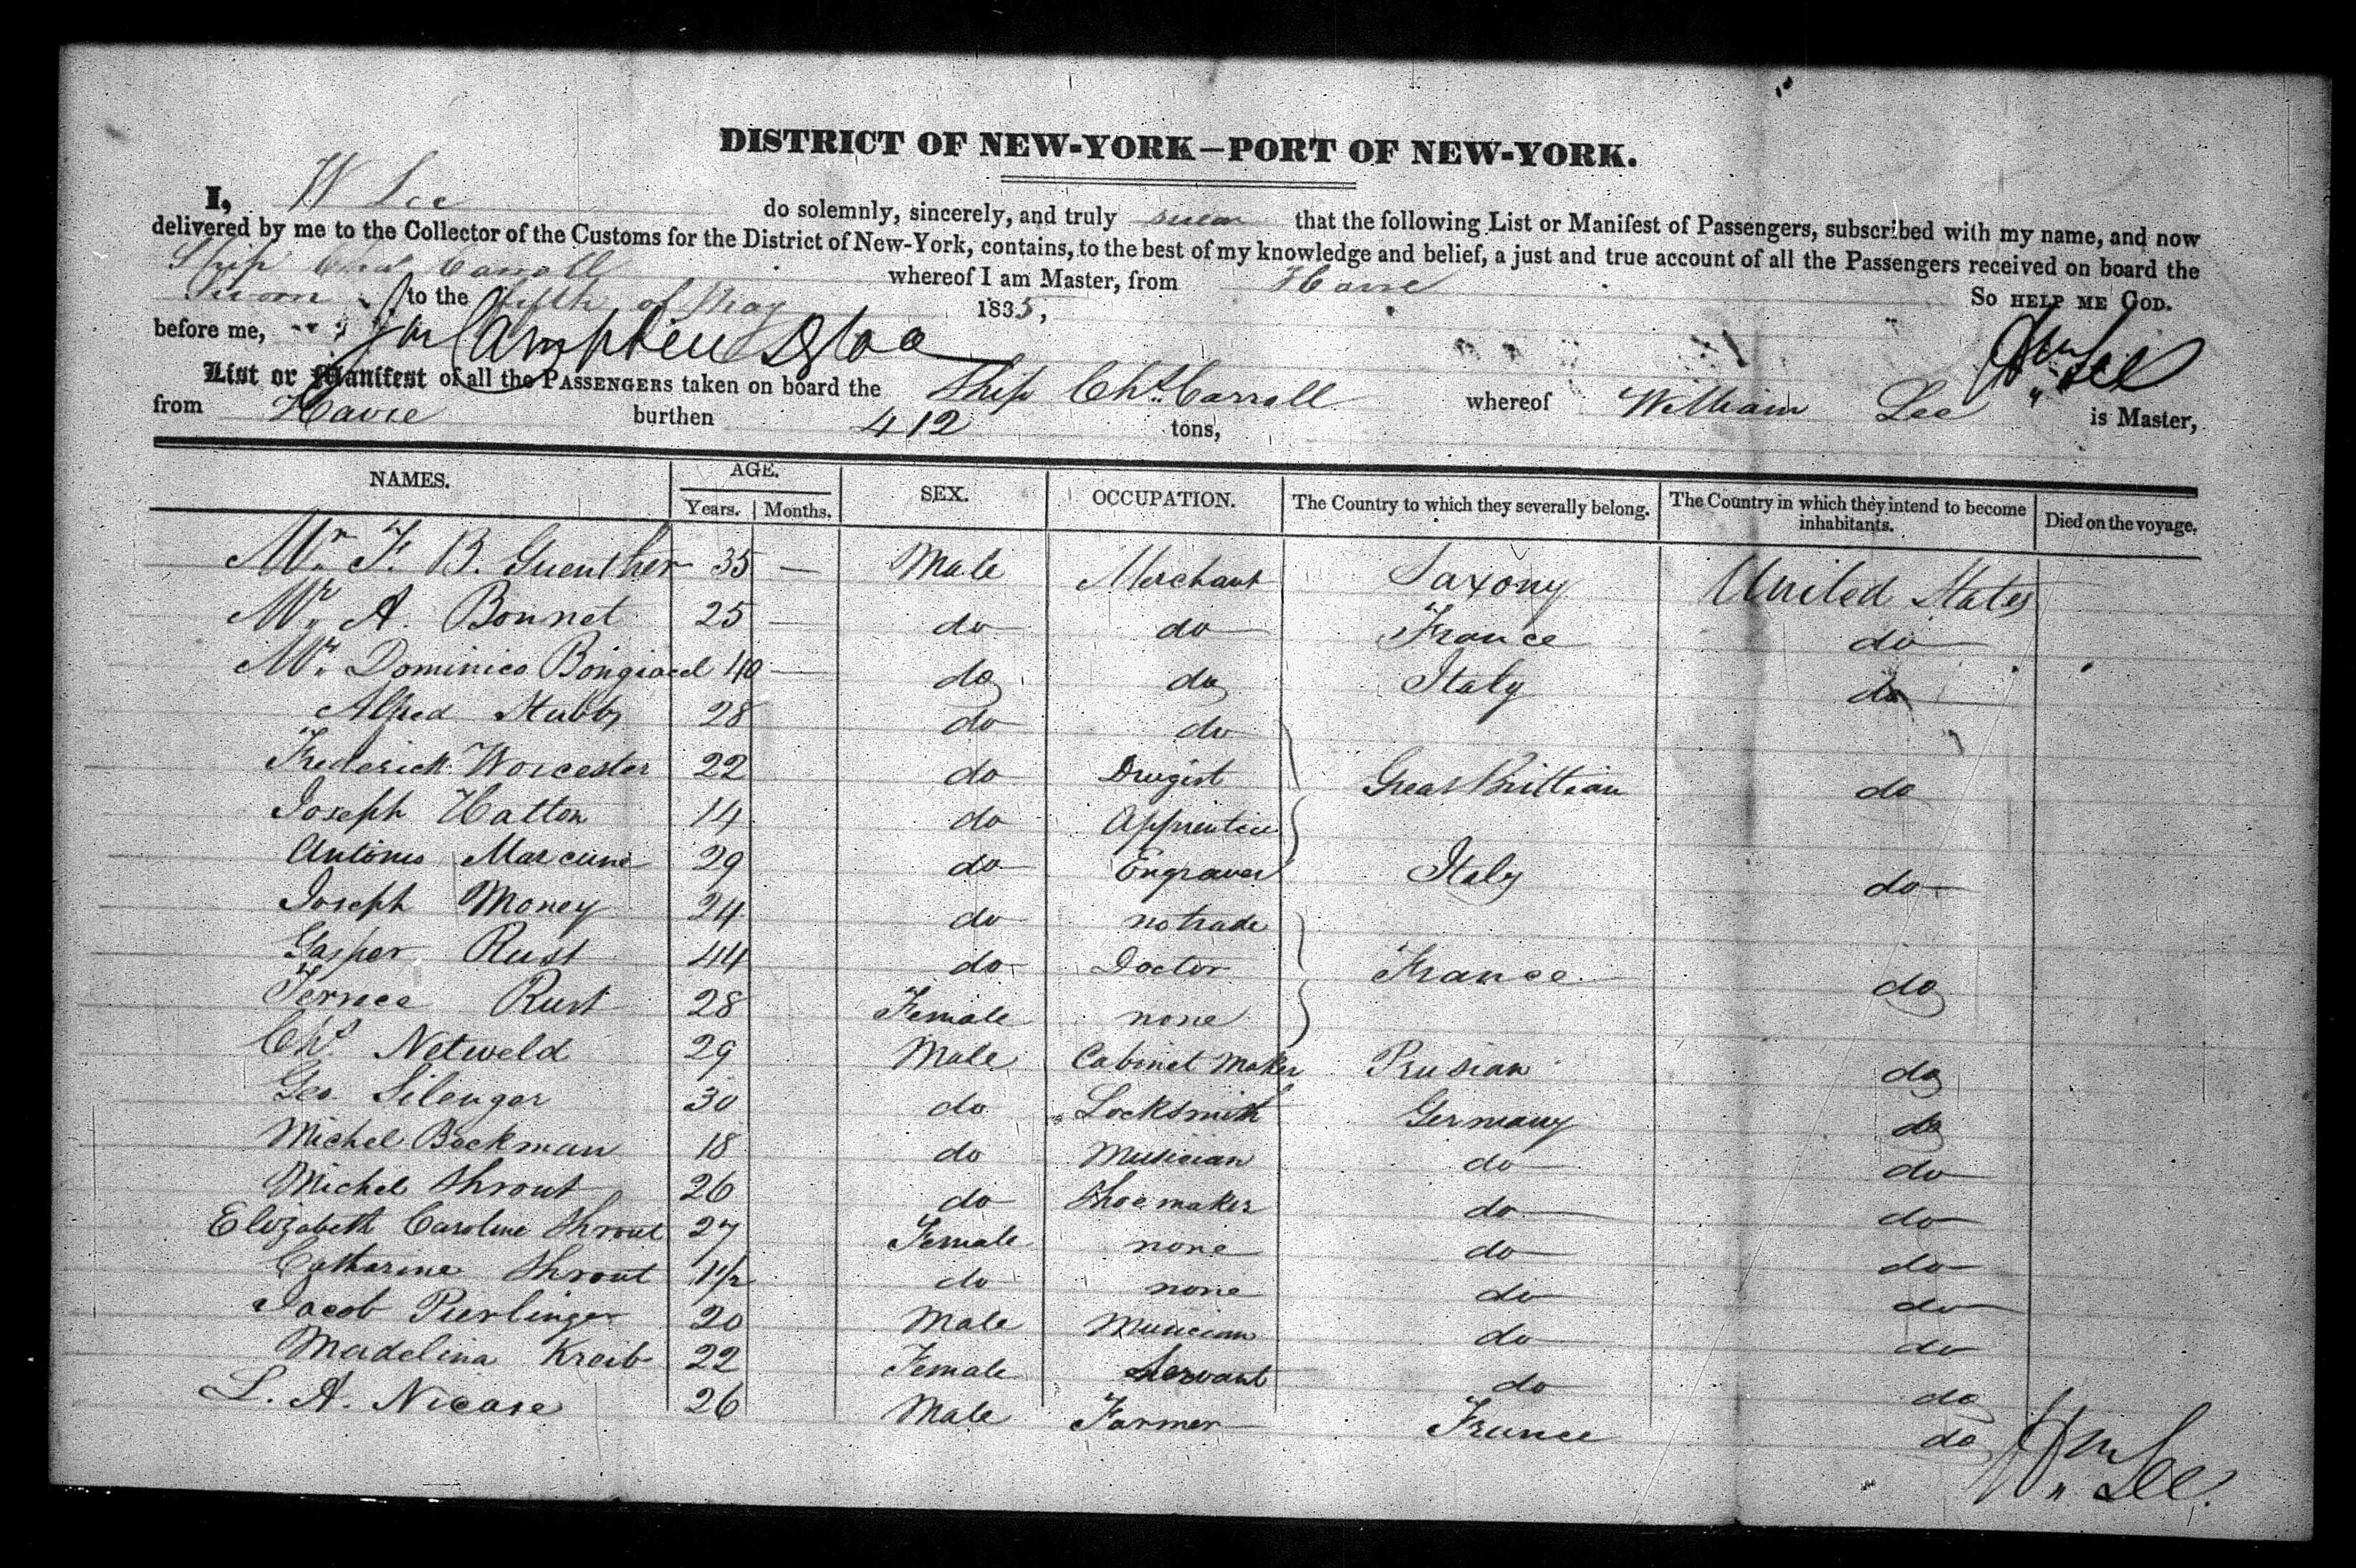 DISTRICT OF NEW-YORK—PORT OF NEW-YORK.
I, W Lee do solemnly, sincerely, and truly swear that the following List or Manifest of Passengers, subscribed with my name, and now
delivered by me to the Collector of the Customs for the District of New-York, contains, to the best of my knowledge and belief, a just and true account of all the Passengers received on board the
Ship Carroll whereof I am Master, from Havre
Sworn to the fifth of May 1835, So HELP ME GOD.
before me, Wm Lee
List or Manifest of all the PASSENGERS taken on board the Ship Chs. Carroll whereof William Lee is Master,
from Havre burthen 412 tons,
NAMES. AGE. SEX. OCCUPATION. The Country to which they severally belong. The Country in which they intend to become inhabitants. Died on the voyage.
Years. Months.
Mr. F. B. Guenther 35 — Male Merchant Saxony United States
Mr. A. Bonnet 25 — do do France do
Mr. Dominico 40 — do do Italy do
Alfred Stubbs 28 do do
Frederick Worcester 22 do Drugist Great Brittian do
Joseph Hatton 14 do Apprentice
Antonio Marcune 29 do Engraver Italy do
Joseph Money 24 do no trade
Gasper Rust 44 do Doctor France do
Rust 28 Female none
Chs. Netweld 29 Male Cabinet Maker Prusian do
Geo. Silenger 30 do Locksmith Germany do
Michel Bockman 18 do Musician do do
Michel Shrout 26 do Shoemaker do do
Elizabeth Caroline Shrout 27 Female none do do
Catharine Shrout 1 1/2 do none do do
Jacob Pierlinger 20 Male Musician do do
Madelina Kreib 22 Female Servant do do
L. A. Nicase 26 Male Farmer France do
Wm Lee.